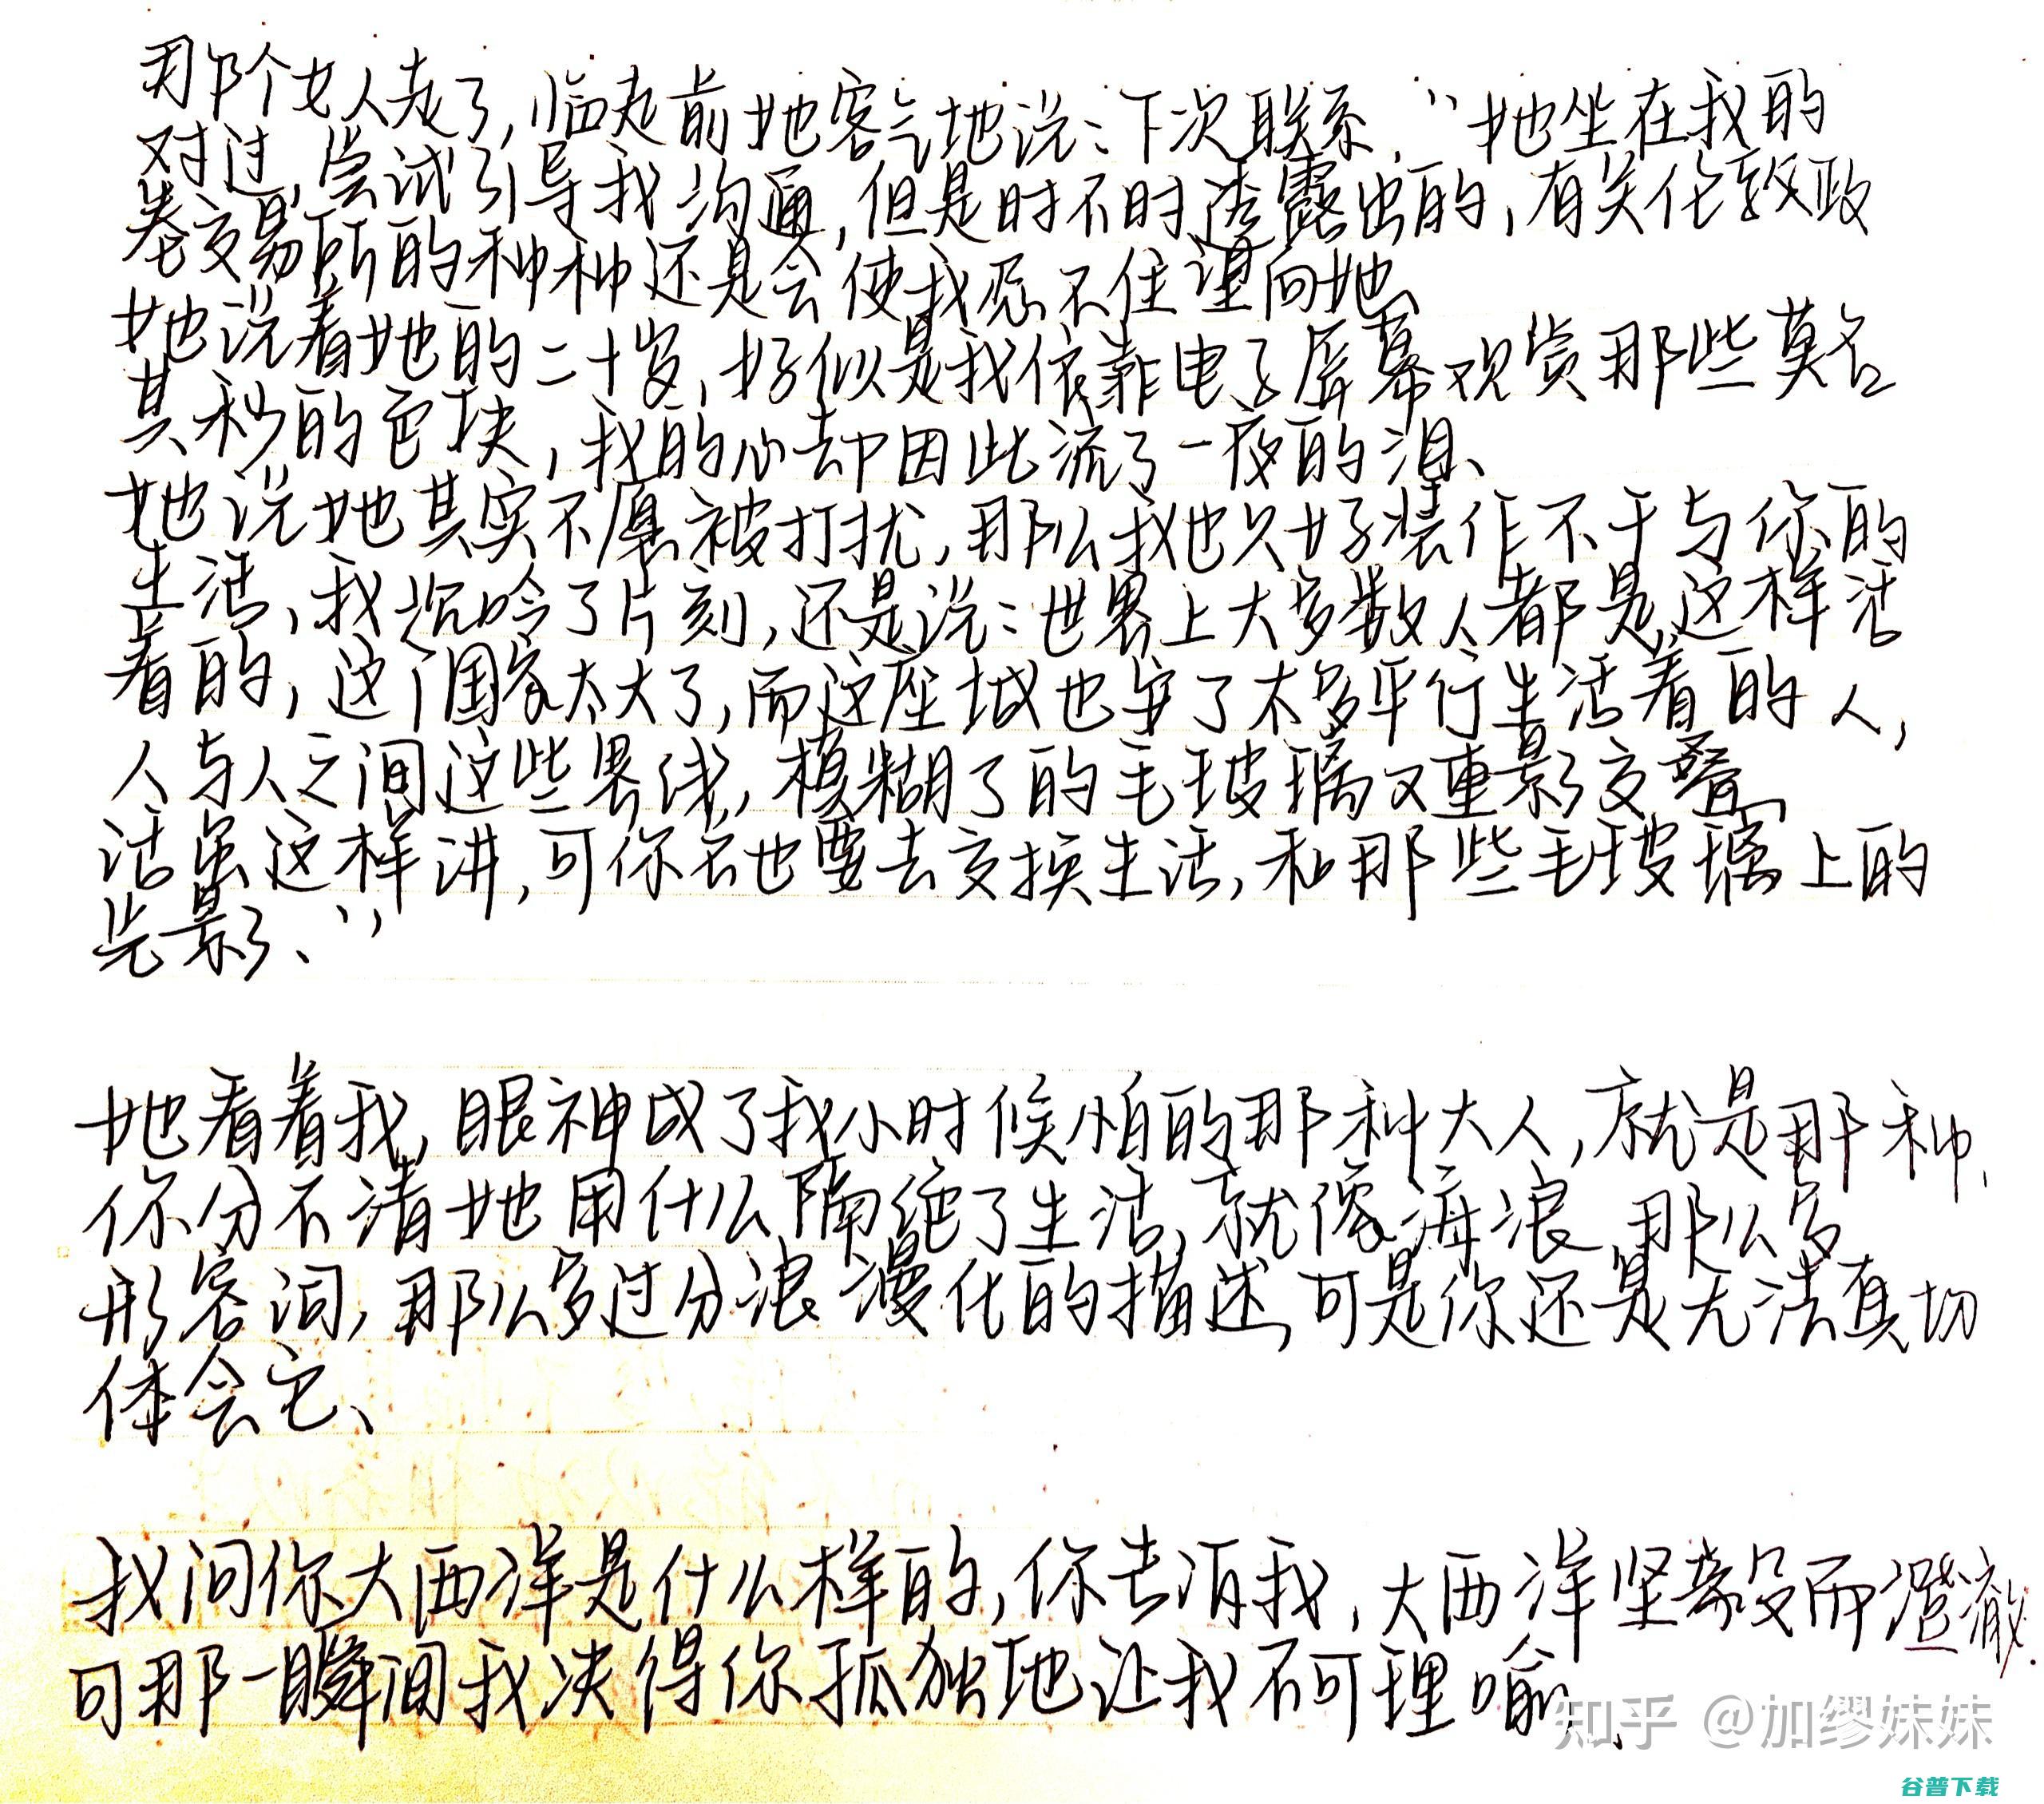 那个女人走了,临走前她客气地说:下次联系,“她坐在我的
对过,尝试引导我沟通,但是时不时透露出的,有关伦敦政
卷交易所的种种还是会使我忍不住望向她、
她说着她的二十岁,好似是我依靠电子屏幕观赏那些莫名
其秒的色块,我的心却因此流了一夜的泪、
她说她其实不愿被打扰,那么我也只好装作不干与你的
生活,我沉吟了片刻,还是说:世界上大多数人都是这样活
着的,这个国家太大了,而这座城也牢了太多平行生活着的人,
人与人之间这些界线,模糊了的毛玻璃又重影交叠、
话虽这样讲,可你若也要去交换生活,和那些毛玻璃上的
光影、”
她看着我,眼神成了我小时候怕的那种大人,就是那种、
你分不清她用什么隔绝了生活,就像海浪,那么多
形容词,那么多过分浪漫化的描述,可是你还是无法真切
体会它、
我问你大西洋是什么样的,你去消我,大西洋坚毅而澄澈.
可那一瞬间我决得你孤独地让我不可理喻、
知乎 @加缪妹妹
谷普下载